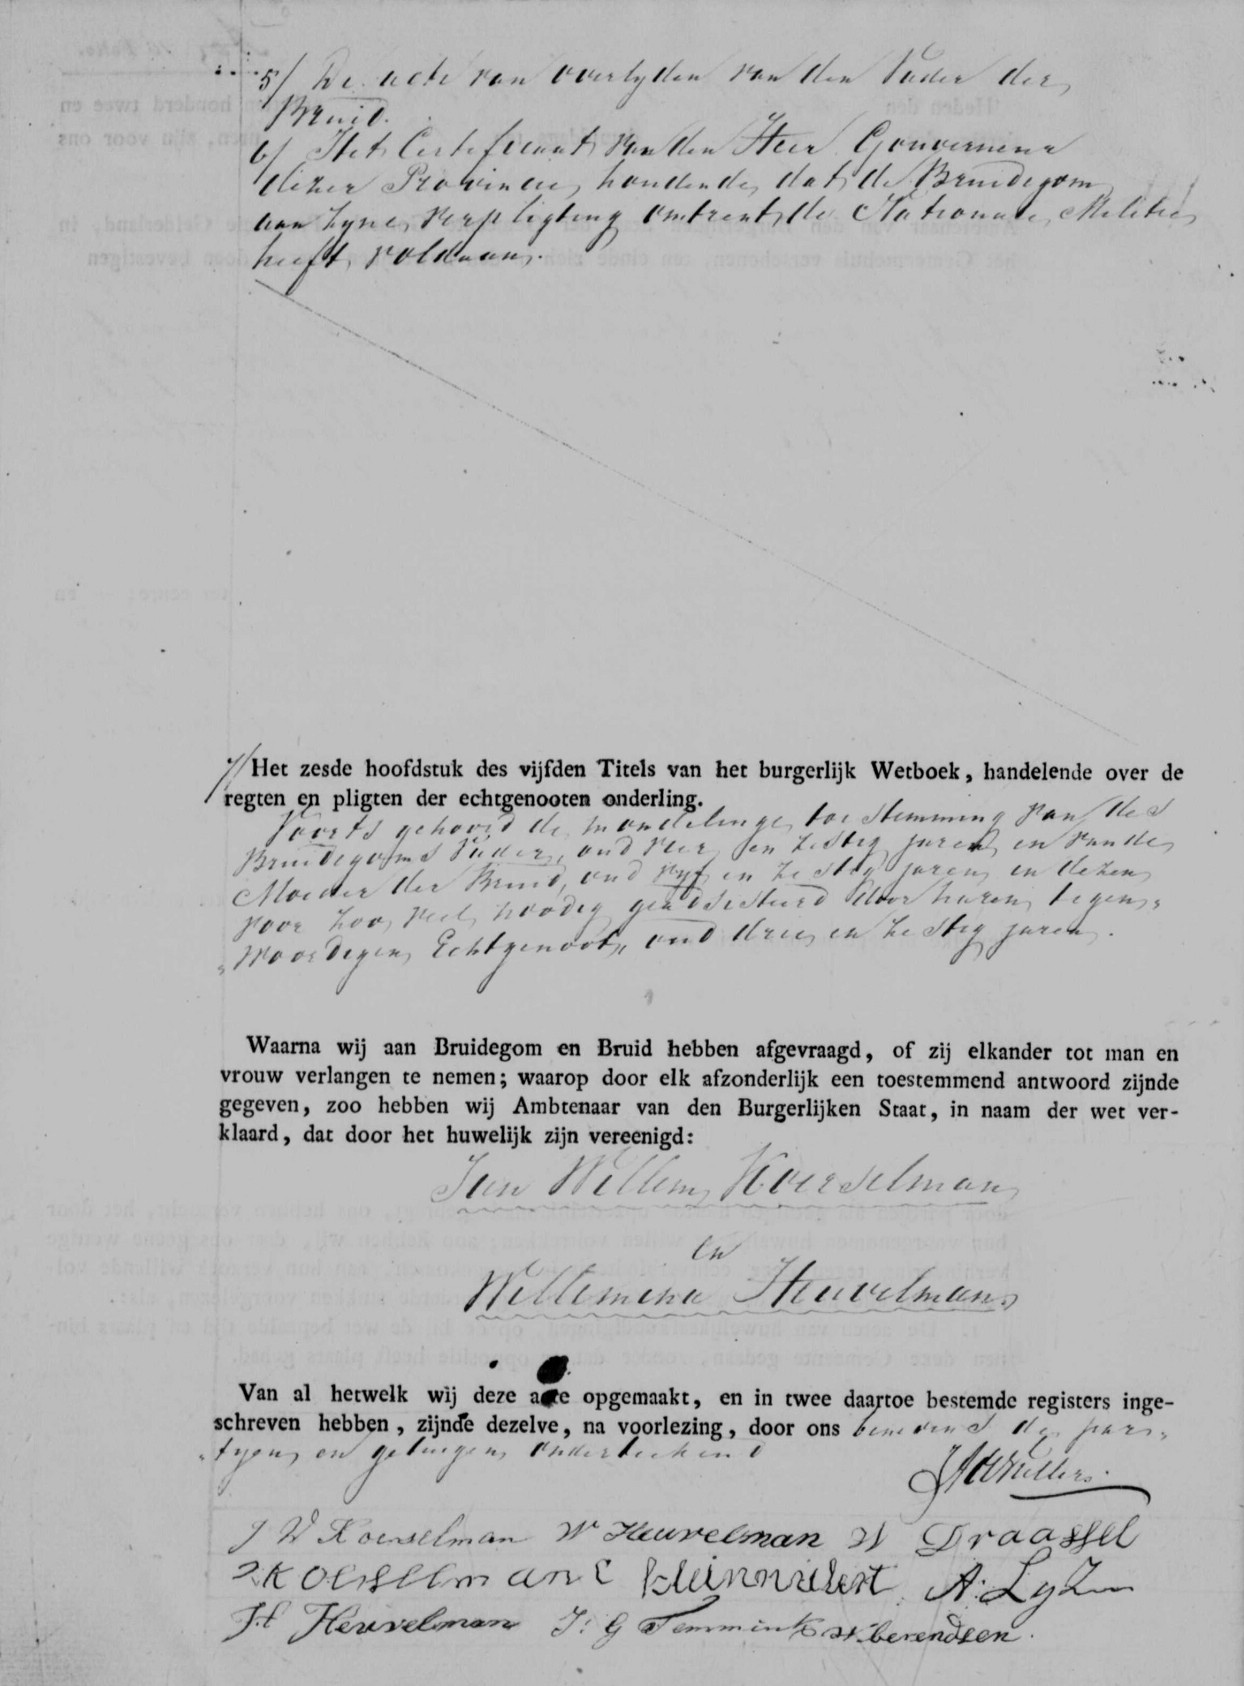 5/ De acte van overlyden van den Vader der
Bruid.
6/ Het Certificaat van den Heer Gouverneur
dezer Provincie, houdende, dat de Bruidegom
aan zyne verpligting omtrent de Nationale Militie
heeft voldaan.
7/ Het zesde hoofdstuk des vijfden Titels van het burgerlijk Wetboek, handelende over de
regten en pligten der echtgenooten onderling.
Voorts gehoord de mondelinge toestemming van des
Bruidegoms Vader, oud vier en zestig jaren en van de
Moeder der Bruid, oud vyf en zestig jaren en dezen
voor zoo veel noodig geadsisteerd door haren tegen„
„woordigen Echtgenoot, oud drie en zestig jaren.
Waarna wij aan Bruidegom en Bruid hebben afgevraagd, of zij elkander tot man en
vrouw verlangen te nemen; waarop door elk afzonderlijk een toestemmend antwoord zijnde
gegeven, zoo hebben wij Ambtenaar van den Burgerlijken Staat, in naam der wet ver-
klaard, dat door het huwelijk zijn vereenigd:
Jan Willem Koerselman
en
Willemina Heuvelman
Van al hetwelk wij deze acte opgemaakt, en in twee daartoe bestemde registers inge-
schreven hebben, zijnde dezelve, na voorlezing, door ons benevens de par„
„tyen en getuigen onderteekend
J W Koerselman W Heuvelman W Draassel
Koerselman
H Heuvelman J: G Temmink W. berendsen.